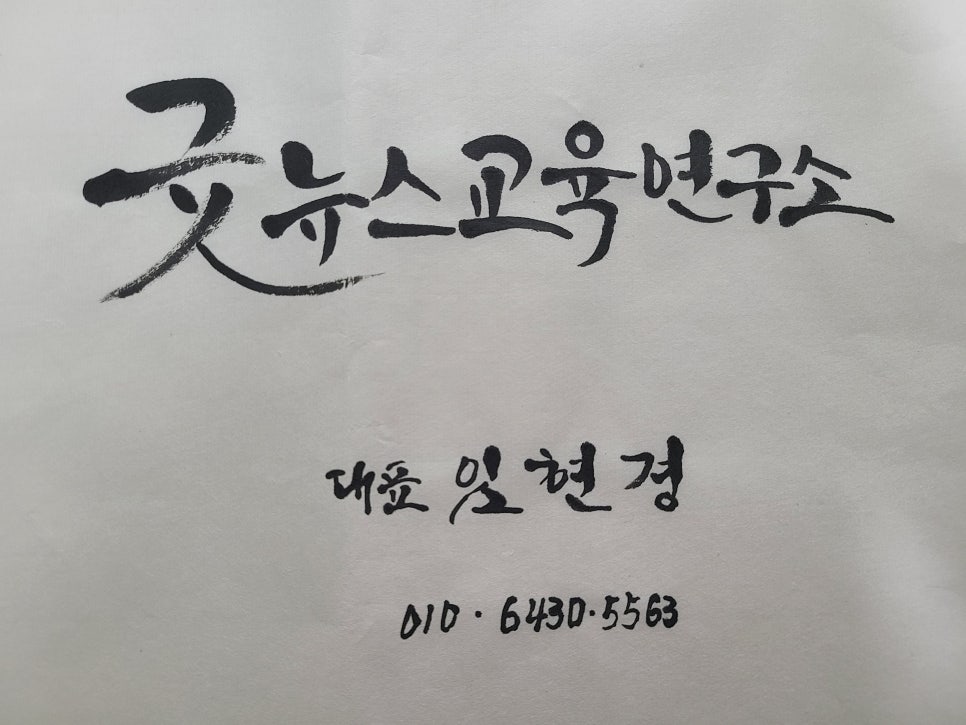 굿뉴스교육연구소
대표 임현경
010·6430·5563